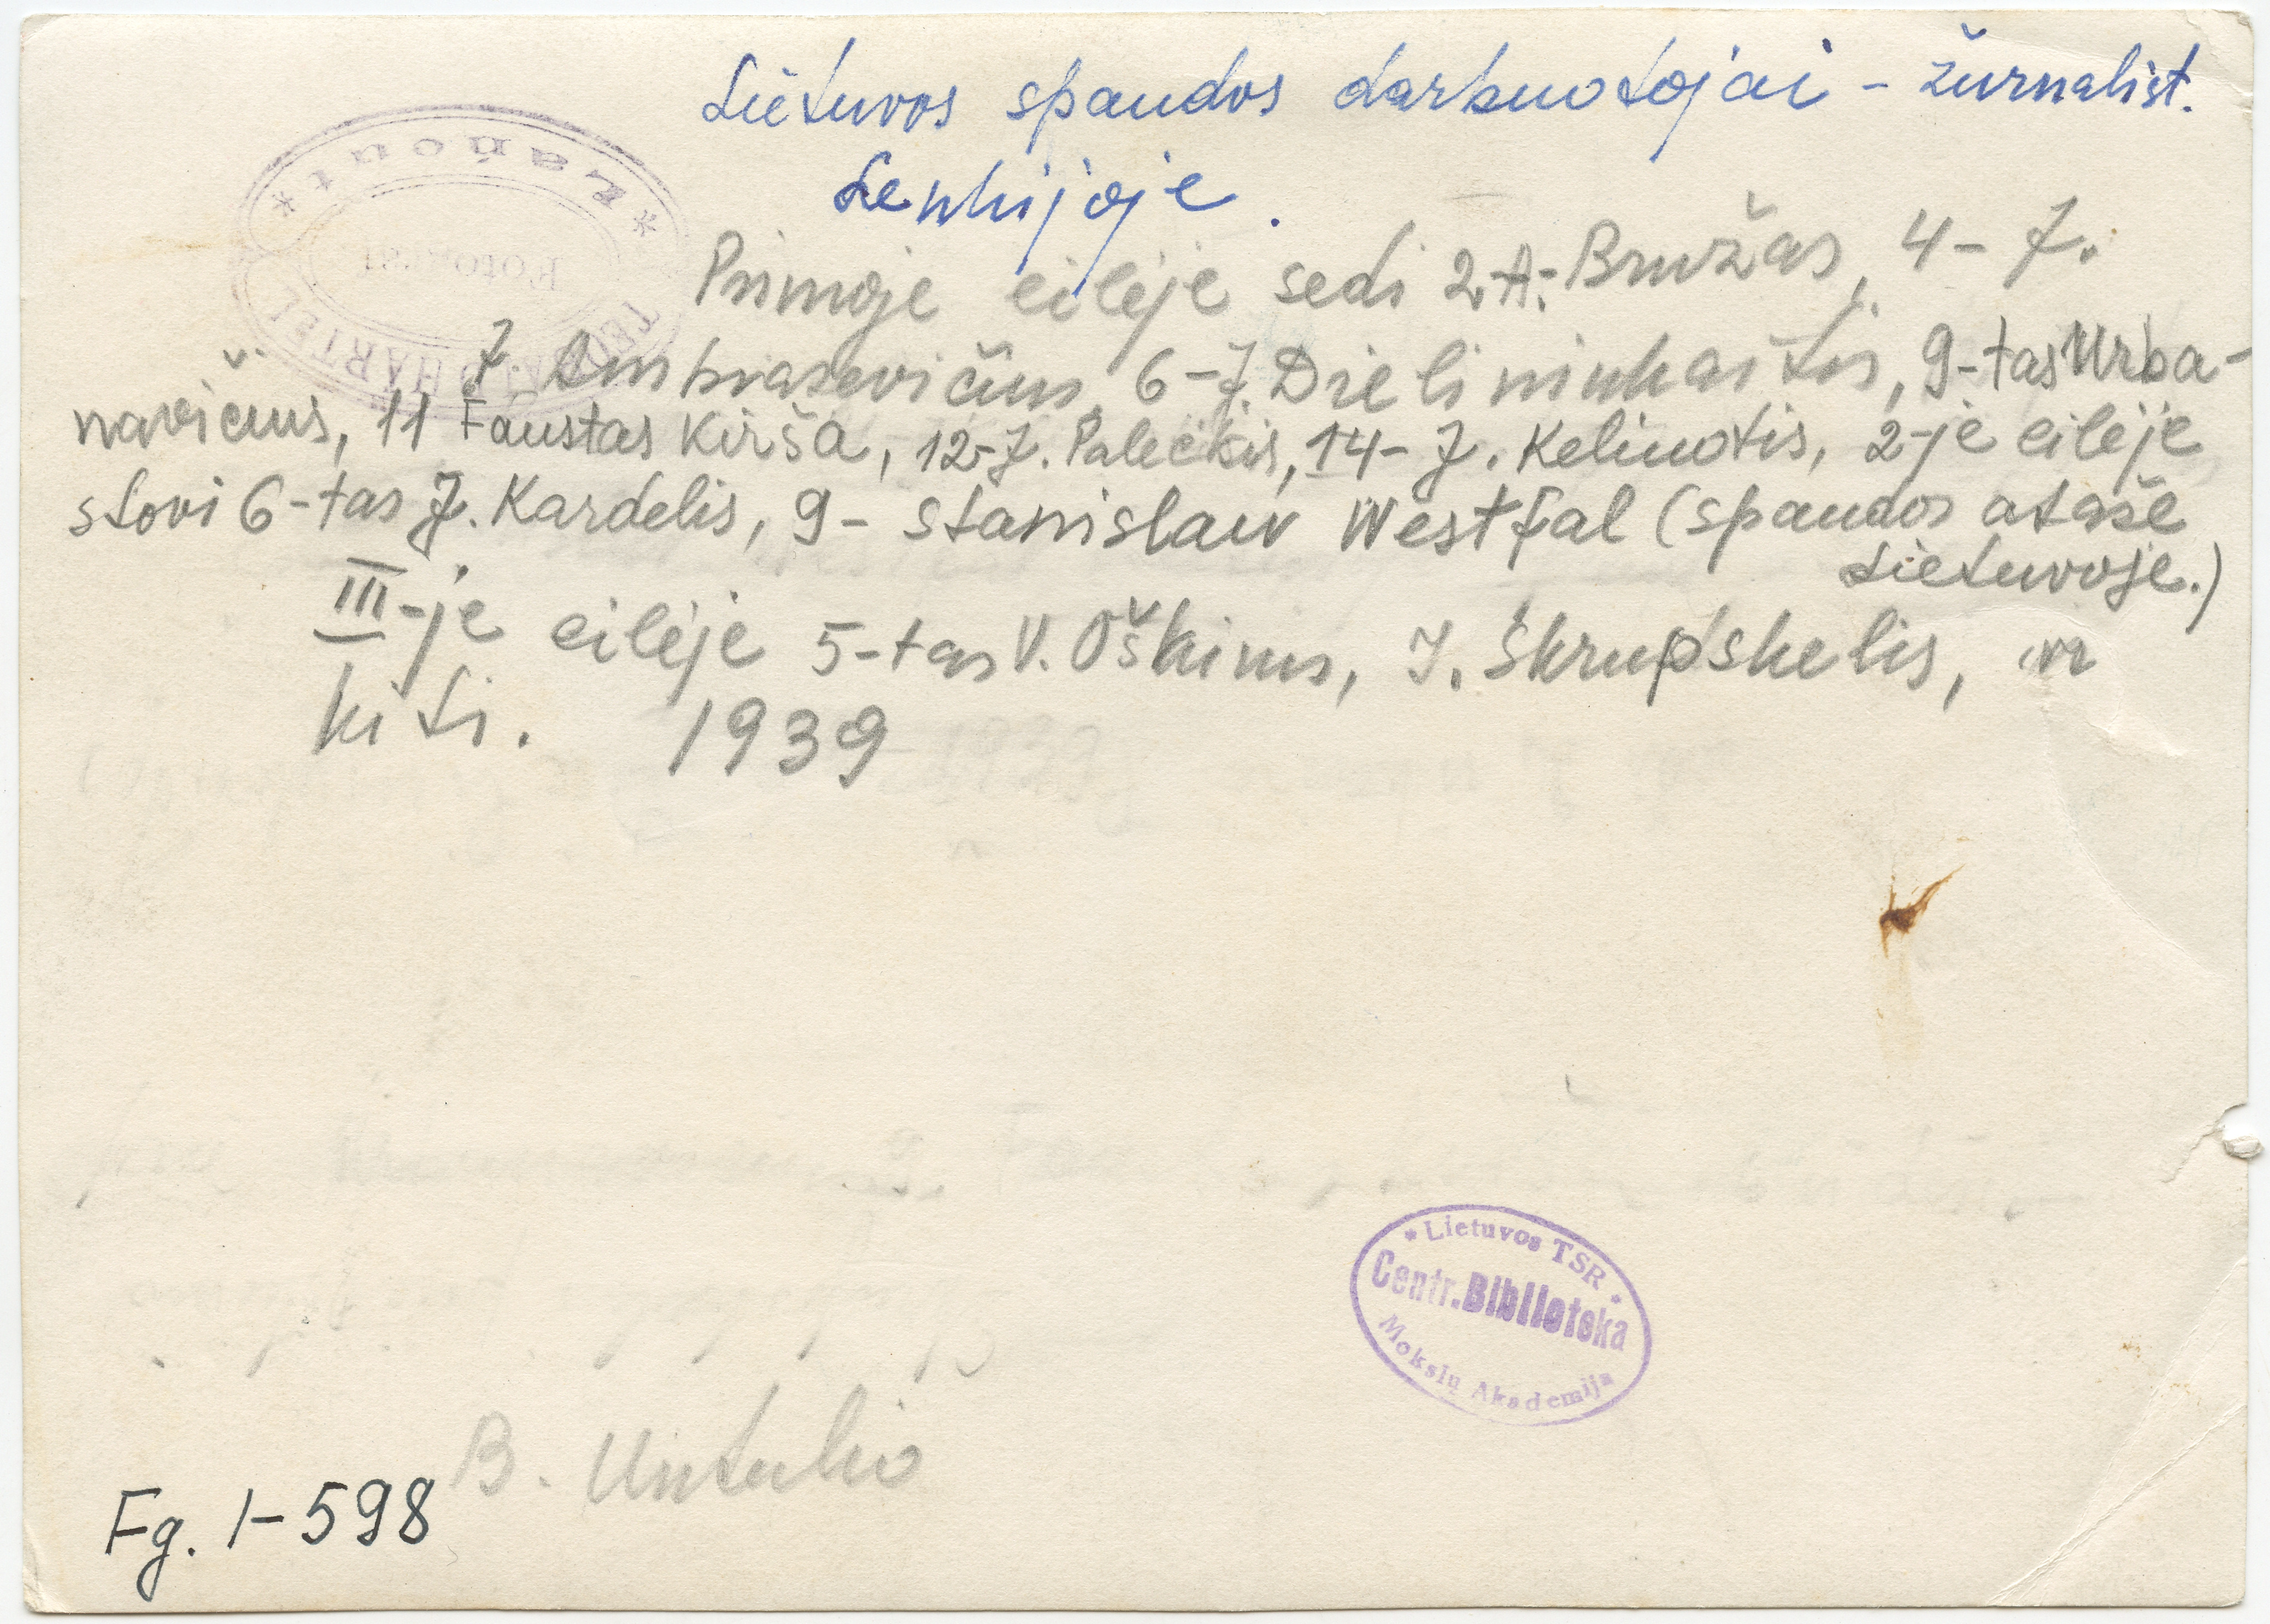 Lietuvos spaudos darbuotojai - žurnalist.
Lenkijoje.
Pirmoje eilėje sėdi 2. A. Bružas, 4- J.
J Ambrasevičius, 6-J. Dielininkaitis, 9-tas Urba-
navičius, 11 Faustas Kirša, 12-J. Paleckis, 14- J. Keliuotis, 2-je eilėje
stovi 6-tas J. Kardelis, 9- Stanislaw Westfal (spaudos atašė
Lietuvoje.)
III-je eilėje 5-tas V. Oškinis, I. Skrupskelis, ir
kiti. 1939
* Łańcut *
HARTEL
* Lietuvos TSR *
Centr. Biblioteka
Mokslų Akademija
B. Untulio
Fg. 1-598